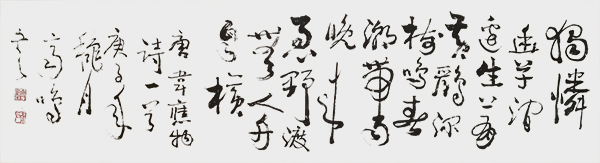 獨憐
幽草澗
邊生上有
黃鸝深
樹鳴春
潮帶雨
晚來
急野渡
無人舟
自橫
唐韋應物
詩一首
庚子年
龍月
高鳴